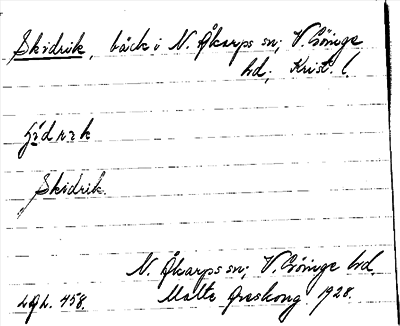 Skidrik, bäck i N. Åkarps sn; V. Göinge
hd; Krist. l.
Skidrik.
N. Åkarps sn; V. Göinge hd.
Malte 1928.
458.